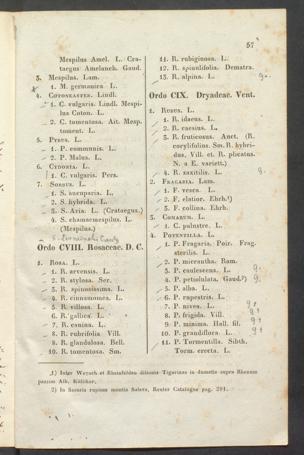 57
Mespilus Amel. L. Cra-
taegus Amelanch. Gaud.
3. Mespilus. Lam.
1. M. germanica L.
4. Cotoneaster. Lindl.
1. C. vulgaris. Lindl. Mespi-
lus Coton. L.
2. C. tomentosa. Ait. Mesp.
toment. L.
5. Pyrus. L.
1. P. communis. L.
2. P. Malus. L.
6. Cydonia. L.
1. C. vulgaris. Pers.
7. Sorbus. L.
1. S. aucuparia. L.
2. S. hybrida. L.
3. S. Aria. L. (Crataegus.)
4. S. chamaemespilus. L.
(Mespilus.)
Ordo CVIII. Rosaceae. D. C.
1. Rosa. L.
1. R. arvensis. L.
2. R. stylosa. Ser.
3. R. spinosissima. L.
4. R. cinnamomea. L.
5. R. villosa. L.
6. R. gallica. L.
7. R. canina. L.
8. R. rubrifolia Vill.
8. R. glandulosa. Bell.
10. R. tomentosa. Sm.
11. R. rubiginosa. L.
12. R. spinulifolia. Dematra.
13. R. alpina. L.
Ordo CIX. Dryadeae. Vent.
1. Rubus. L.
1. R. idaeus. L.
2. R. caesius. L.
3. R. fruticosus. Auct. (R.
corylifolius. Sm. R. hybri-
dus. Vill. et. R. plicatus.
N. a E. variett.)
4. R. saxatilis. L.
2. Fragaria. Lam.
1. F. vesca. L.
2. F. elatior. Ehrh.¹)
3. F. collina. Ehrh.
3. Comarum. L.
1. C. palustre. L.
4. Potentilla. L.
1. P. Fragaria. Poir. Frag.
sterilis. L.
2. P. micrantha. Ram.
3. P. caulescens. L.
4. P. petiolulata. Gaud.²)
5. P. alba. L.
6. P. rupestris. L.
7. P. nivea. L.
8. P. frigida. Vill.
9. P. minima. Hall. fil.
10. P. grandiflora. L.
11. P. Tormentilla. Sibth.
Torm. erecta. L.
1) Inter Weyach et Rheinfelden ditionis Tigurinae in dumetis supra Rhenum
passim Alb. Kölliker.
2) In Saxosis rupium montis Saleva, Reuter Catalogue pag. 201.